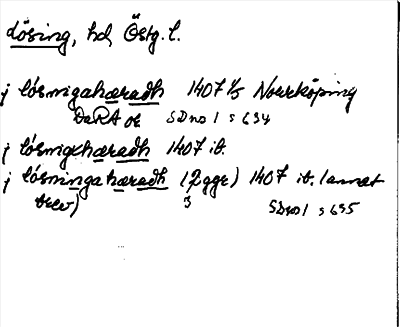 Lösing, hd, Östg. l.
j lósnigahæradh 1407 1/5 Norrköping
DaRA or SDns 1 s 634
j lósnigehæradh 1407 ib.
j lósningahæradh (2ggr) 1407 ib. (annat
3
brev) SDns 1 s 635